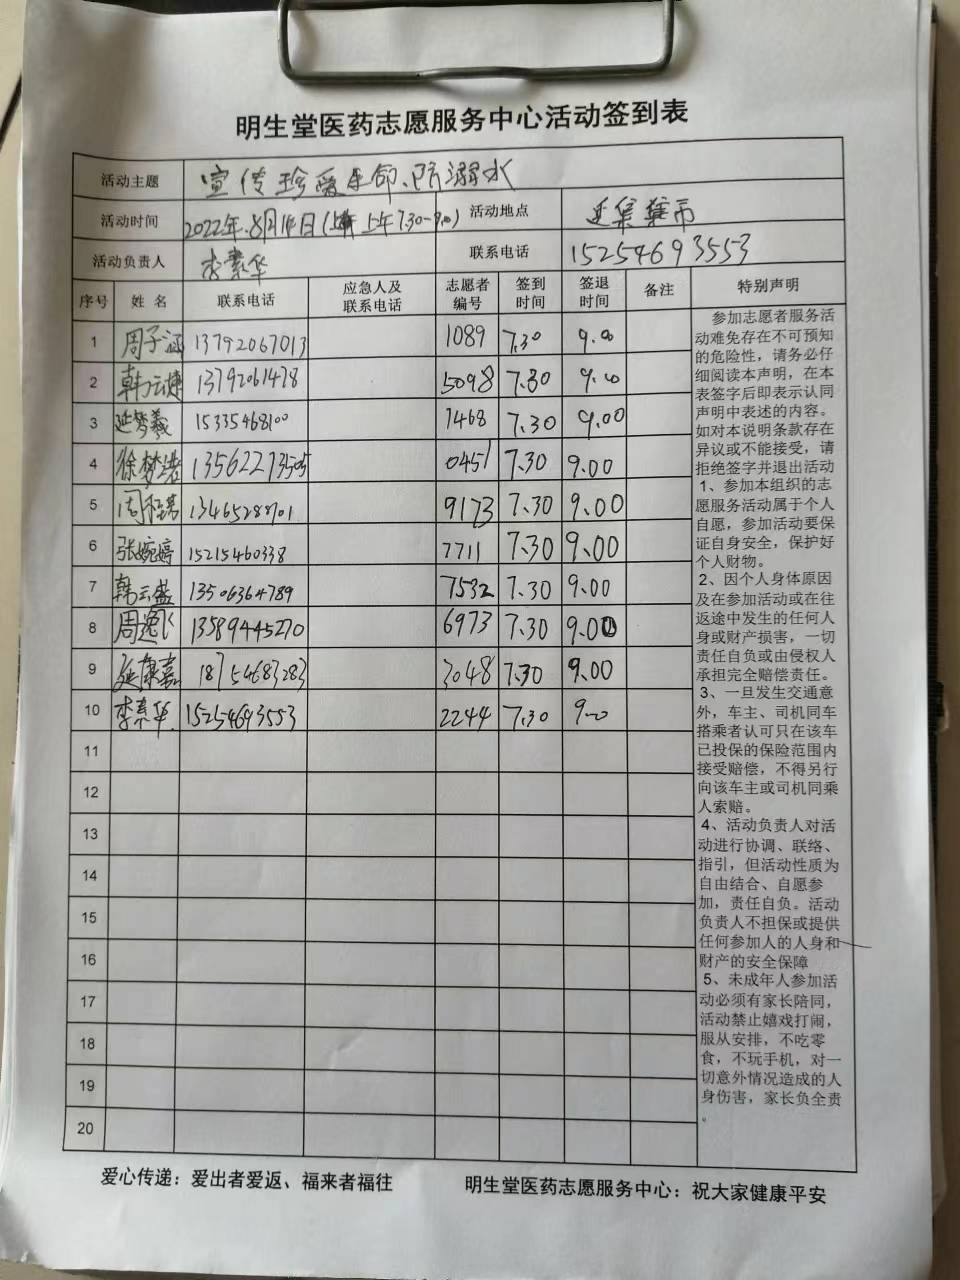 明生堂医药志愿服务中心活动签到表
活动主题 宣传珍爱生命、防溺水
活动时间 2022年.8月14日(上午7.30-9.00) 活动地点 延集集市
活动负责人 李素华 联系电话 15254693553
序号 姓名 联系电话 应急人及联系电话 志愿者编号 签到时间 签退时间 备注 特别声明
1 周子涵 13792067013 1089 7.30 9.00
2 韩云婕 13792061478 5098 7.30 9.00
3 延梦羲 15335468100 7468 7.30 9.00
4 徐梦诺 13562273505 0451 7.30 9.00
5 周 13465288701 9173 7.30 9.00
6 张婉婷 15215460338 7711 7.30 9.00
7 韩云盛 13506364789 7532 7.30 9.00
8 周逸飞 13589445270 6973 7.30 9.00
9 延康嘉 18754683283 3048 7.30 9.00
10 李素华 15254693553 2244 7.30 9.0
11
12
13
14
15
16
17
18
19
20
参加志愿者服务活
动难免存在不可预知
的危险性，请务必仔
细阅读本声明，在本
表签字后即表示认同
声明中表述的内容。
如对本说明条款存在
异议或不能接受，请
拒绝签字并退出活动
1、参加本组织的志
愿服务活动属于个人
自愿，参加活动要保
证自身安全，保护好
个人财物。
2、因个人身体原因
及在参加活动或在往
返途中发生的任何人
身或财产损害，一切
责任自负或由侵权人
承担完全赔偿责任。
3、一旦发生交通意
外，车主、司机同车
搭乘者认可只在该车
已投保的保险范围内
接受赔偿，不得另行
向该车主或司机同乘
人索赔。
4、活动负责人对活
动进行协调、联络、
指引，但活动性质为
自由结合、自愿参
加，责任自负。活动
负责人不担保或提供
任何参加人的人身和
财产的安全保障
5、未成年人参加活
动必须有家长陪同，
活动禁止嬉戏打闹，
服从安排，不吃零
食，不玩手机，对一
切意外情况造成的人
身伤害，家长负全责
。
爱心传递：爱出者爱返、福来者福往 明生堂医药志愿服务中心：祝大家健康平安